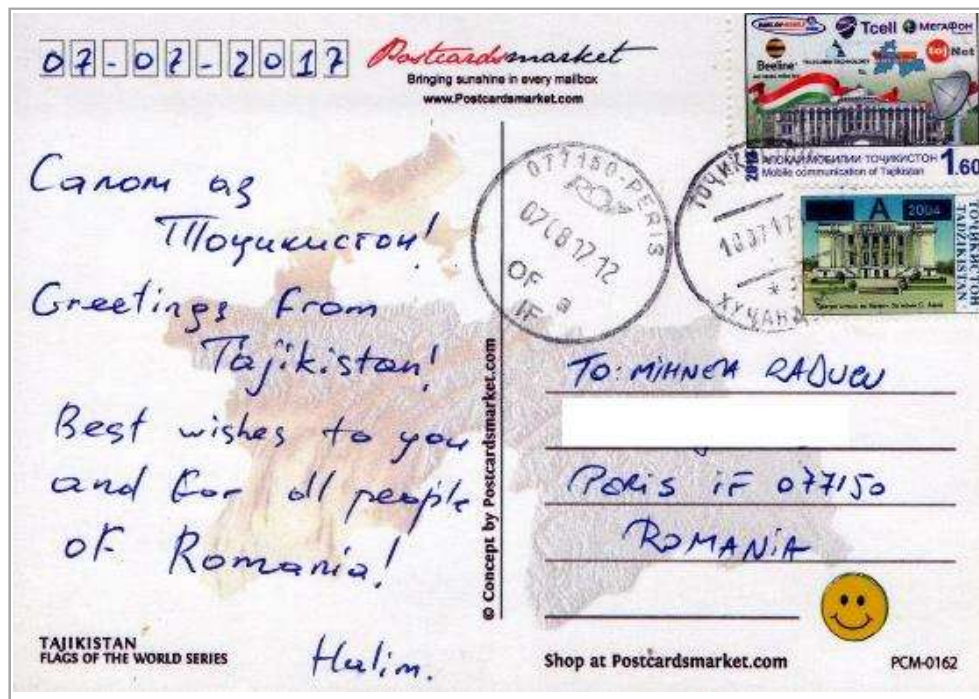 07-07-2017
Postcardsmarket
Bringing sunshine in every mailbox
www.Postcardsmarket.com
Tcell МЕГАФОН
Beeline
АЛОҚАИ МОБИЛИИ ТОҶИКИСТОН 1.60
Mobile communication of Tajikistan
A 2004
TADZIKISTAN
077150-PERIS
07 08 17 12
OF
IF a
ХУҶАНД
Салом аз
Тоҷикистон!
Greetings from
Tajikistan!
Best wishes to you
and for all people
of Romania!
Halim.
© Concept by Postcardsmarket.com
TO: MIHNEA RADUCU
Peris IF 077150
ROMANIA
TAJIKISTAN
FLAGS OF THE WORLD SERIES
Shop at Postcardsmarket.com
PCM-0162